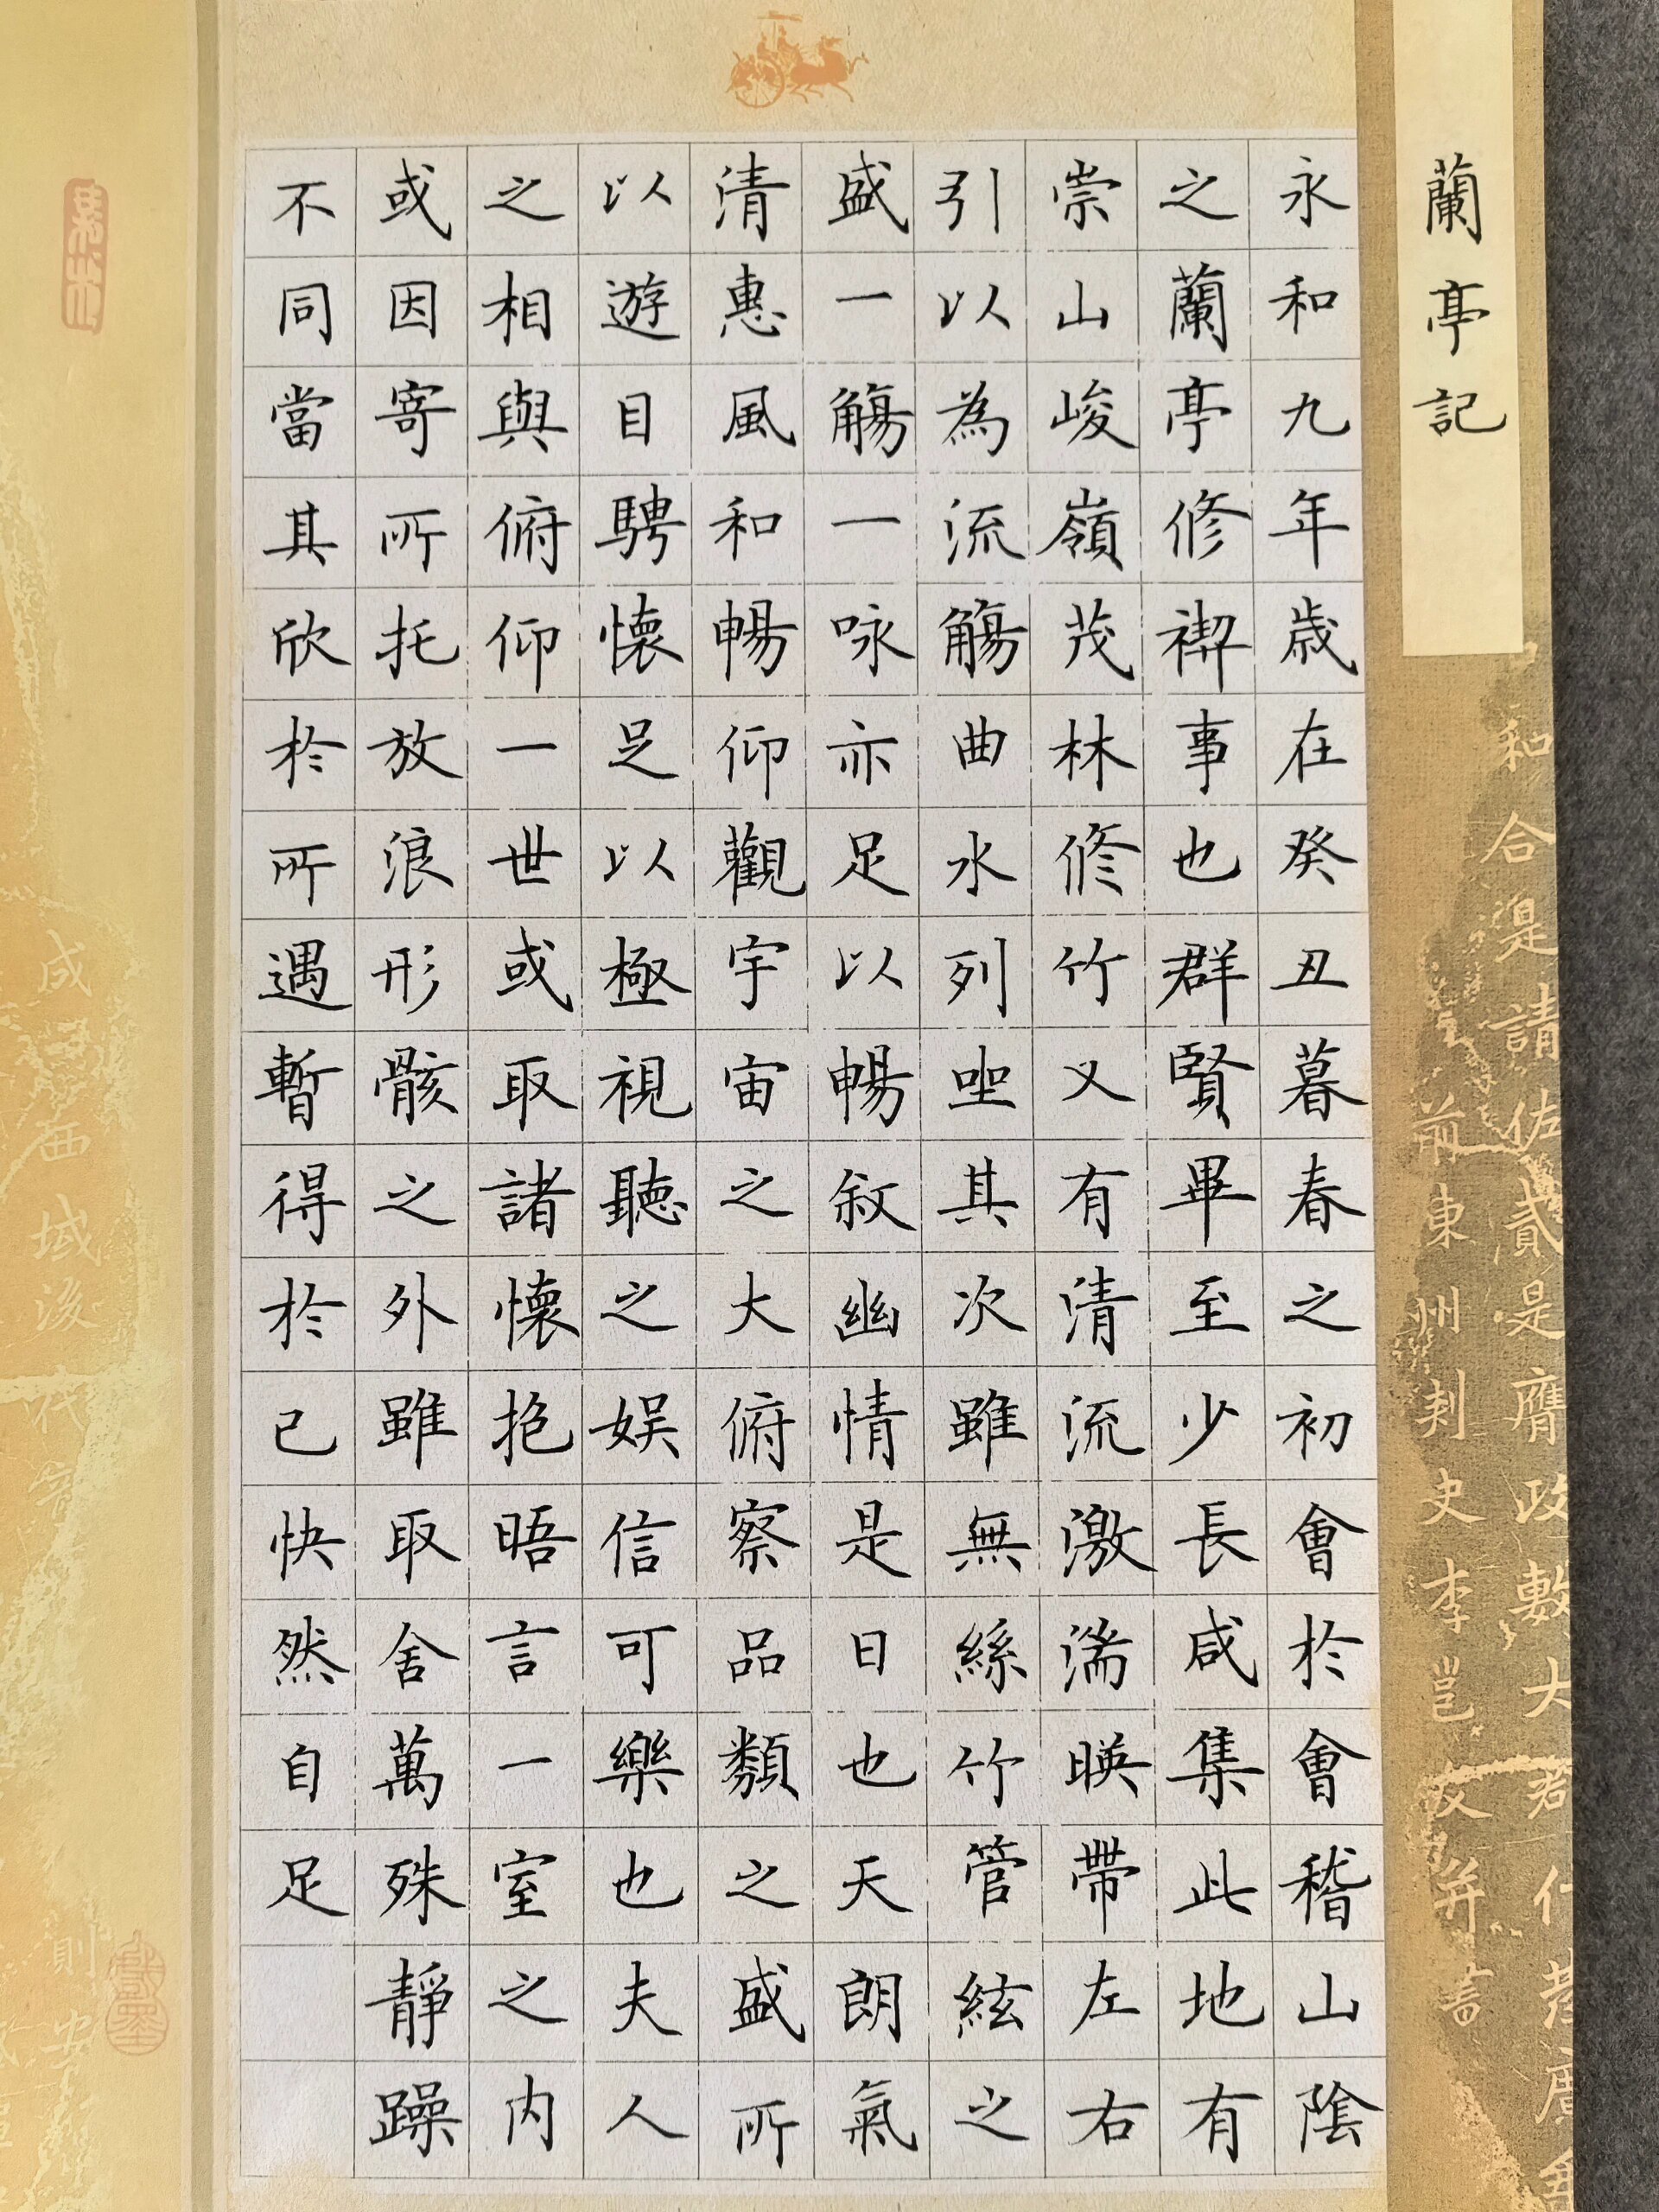 蘭亭記
永和九年歲在癸丑暮春之初會於會稽山陰
之蘭亭修禊事也群賢畢至少長咸集此地有
崇山峻嶺茂林修竹又有清流激湍暎帶左右
引以為流觴曲水列坐其次雖無絲竹管絃之
盛一觴一咏亦足以暢敘幽情是日也天朗氣
清惠風和暢仰觀宇宙之大俯察品類之盛所
以遊目騁懷足以極視聽之娛信可樂也夫人
之相與俯仰一世或取諸懷抱晤言一室之内
或因寄所托放浪形骸之外雖取舍萬殊靜躁
不同當其欣於所遇暫得於己快然自足
和合是請佐貳是膺政數大君
前東州刾史李邕文并書
咸西域後代